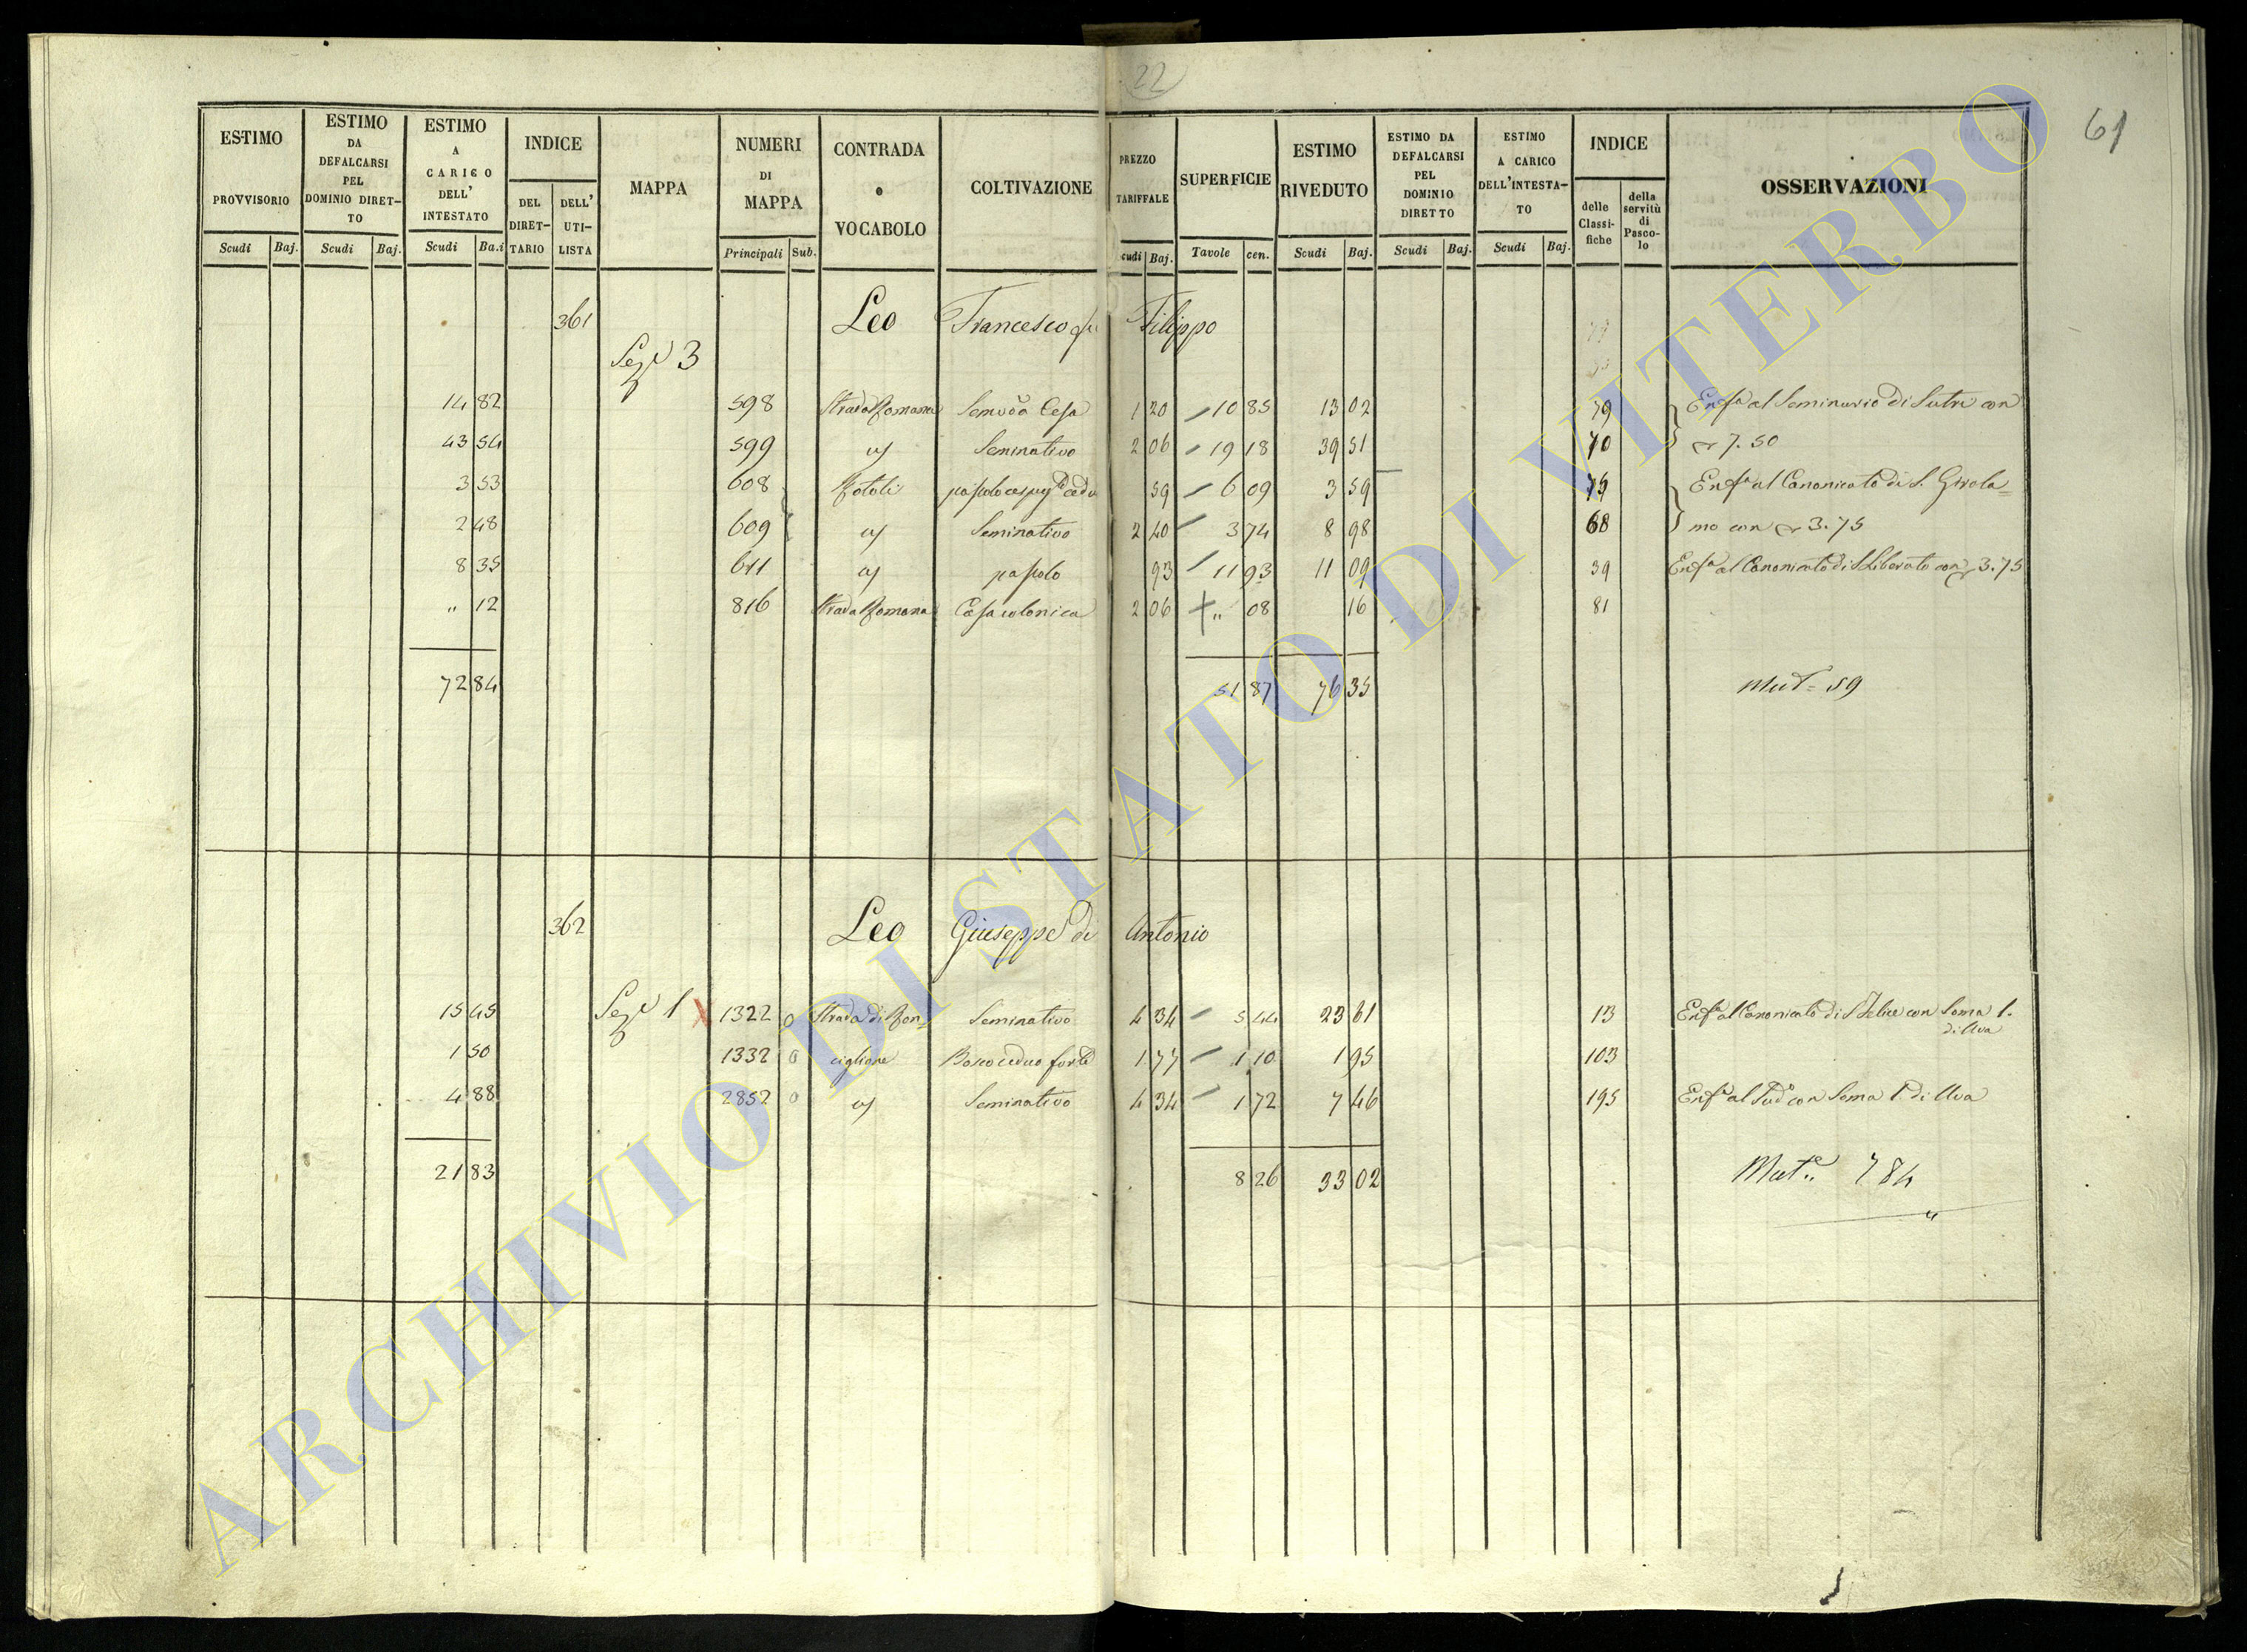 22
61
ESTIMO PROVVISORIO Scudi Baj.
ESTIMO DA DEFALCARSI PEL DOMINIO DIRETTO Scudi Baj.
ESTIMO A CARICO DELL' INTESTATO Scudi Ba.i
INDICE DEL DIRETTARIO DELL' UTILISTA
MAPPA
NUMERI DI MAPPA Principali Sub.
CONTRADA o VOCABOLO
COLTIVAZIONE
PREZZO TARIFFALE cudi Baj.
SUPERFICIE Tavole cen.
ESTIMO RIVEDUTO Scudi Baj.
ESTIMO DA DEFALCARSI PEL DOMINIO DIRETTO Scudi Baj.
ESTIMO A CARICO DELL'INTESTATO Scudi Baj.
INDICE delle Classifiche della servitù di Pascolo
OSSERVAZIONI
361 Leo Francesco fu Filippo
Sez.e 3
14 82 598 Strada Romana Semvo Cesa 1 20 10 85 13 02 79 Enfa al Seminario di Sutri con
43 54 599 aj Seminativo 2 06 19 18 39 51 70 7.50
3 53 608 Rototi pascolo cespug cedu 59 6 09 3 59 75 Enfa al Canonicato di S. Girola=
2 48 609 aj Seminativo 2 40 3 74 8 98 68 mo con 3.75
8 35 611 aj pascolo 93 11 93 11 09 39 Enfa al Canonicato di S Liberato con 3.75
" 12 816 Strada Romana Casa colonica 2 06 " 08 16 81
72 84 51 87 76 35 Mut= 59
362 Leo Giuseppe di Antonio
15 45 Sez.e 1 X 1322 o Strada di Ron= Seminativo 4 34 5 44 23 61 13 Enfa al Canonicato di S Felice con Soma 1.
di Uva
1 50 1332 o ciglione Bosco ceduo forte 1 77 1 10 1 95 103
4 88 2852 o aj Seminativo 4 34 1 72 7 46 195 Enfa al Sudo con Soma 1 di Uva
21 83 8 26 33 02 Mut.e 784
ARCHIVIO DI STATO DI VITERBO